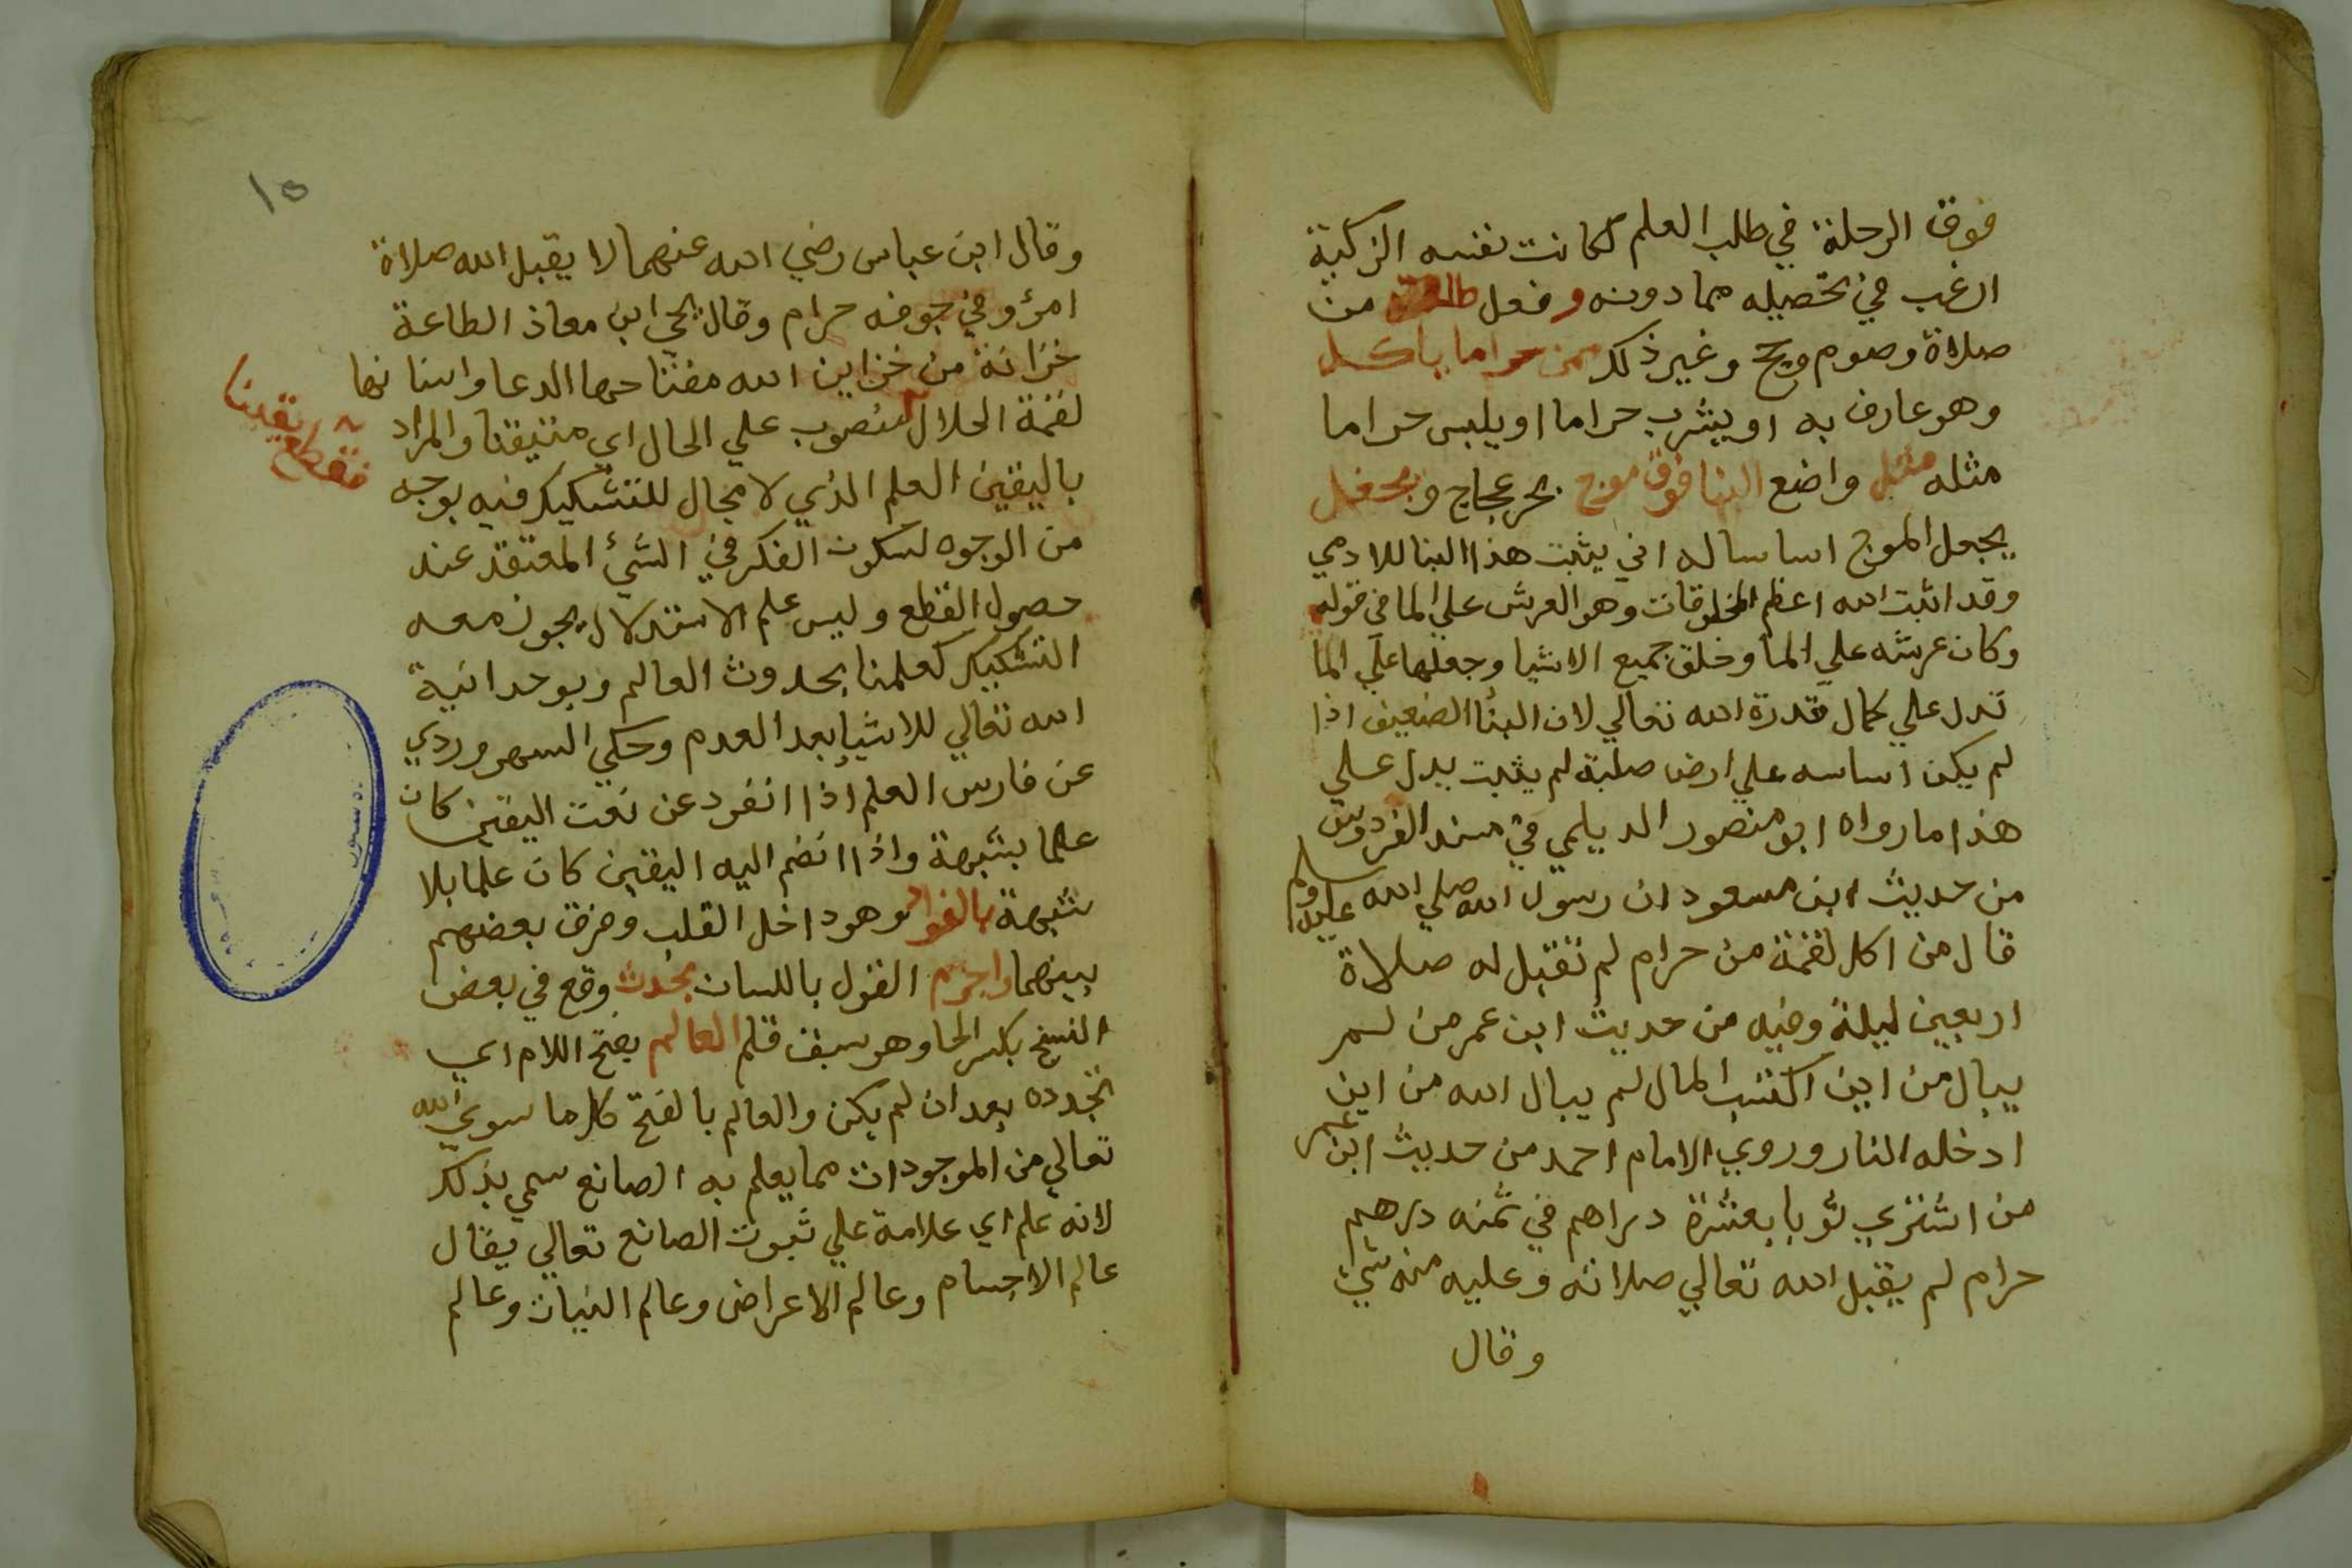 فوق الرحلة في طلب العلم لكانت نفسه الزكية
ارغب في تحصيله مما دونه وفعل طاعة من
صلاة وصوم وحج وغير ذلك ممن حراما ياكل
وهو عارف به او يشرب حراما او يلبس حراما
مثله مثل واضع البنا فوق موج بحر عجاج ويجعل
يجعل الموج اساسا له اني يثبت هذا البنا للادمي
وقد اثبت الله اعظم المخلوقات وهو العرش علي الما في قوله
وكان عرشه علي الما وخلق جميع الاشيا وجعلها علي الما
تدل علي كمال قدرة الله تعالي لان البنا الضعيف اذا
لم يكن اساسه علي ارض صلبة لم يثبت يدل علي
هذا ما رواه ابو منصور الديلمي في مسند الفردوس
من حديث ابن مسعود ان رسول الله صلي الله عليه وسلم
قال من اكل لقمة من حرام لم تقبل له صلاة
اربعين ليلة وفيه من حديث ابن عمر من لم
يبال من اين اكتسب المال لم يبال الله من اين
ادخله النار وروي الامام احمد من حديث ابن عمر
من اشتري ثوبا بعشرة دراهم في ثمنه درهم
حرام لم يقبل الله تعالي صلاته وعليه منه شي
وقال
١٥
وقال ابن عباس رضي الله عنهما لا يقبل الله صلاة
امرؤ في جوفه حرام وقال يحي ابن معاذ الطاعة
خزانة من خزاين الله مفتاحها الدعا واسنانها
لقمة الحلال منصوب علي الحال اي متيقنا والمراد
فقطع يقينا
باليقين العلم الذي لا مجال للتشكيك فيه بوجه
من الوجوه لسكون الفكر في الشئ المعتقد عند
حصول القطع وليس علم الاستدلال يجوز معه
التشكيك كعلمنا بحدوث العالم وبوحدانية
الله تعالي للاشيا بعد العدم وحكي السهروردي
عن فارس العلم اذا انفرد عن نعت اليقين كان
علما بشبهة واذا انضم اليه اليقين كان علما بلا
شبهة بالفواد وهو داخل القلب وفرق بعضهم
بينهما واجزم القول باللسان بحدث وقع في بعض
النسخ بكسر الحا وهو سبق قلم العالم بفتح اللام اي
تجدده بعد ان لم يكن والعالم بالفتح كل ما سوي الله
تعالي من الموجودات مما يعلم به الصانع سمي بذلك
لانه علم اي علامة علي ثبوت الصانع تعالي يقال
عالم الاجسام وعالم الاعراض وعالم النبات وعالم